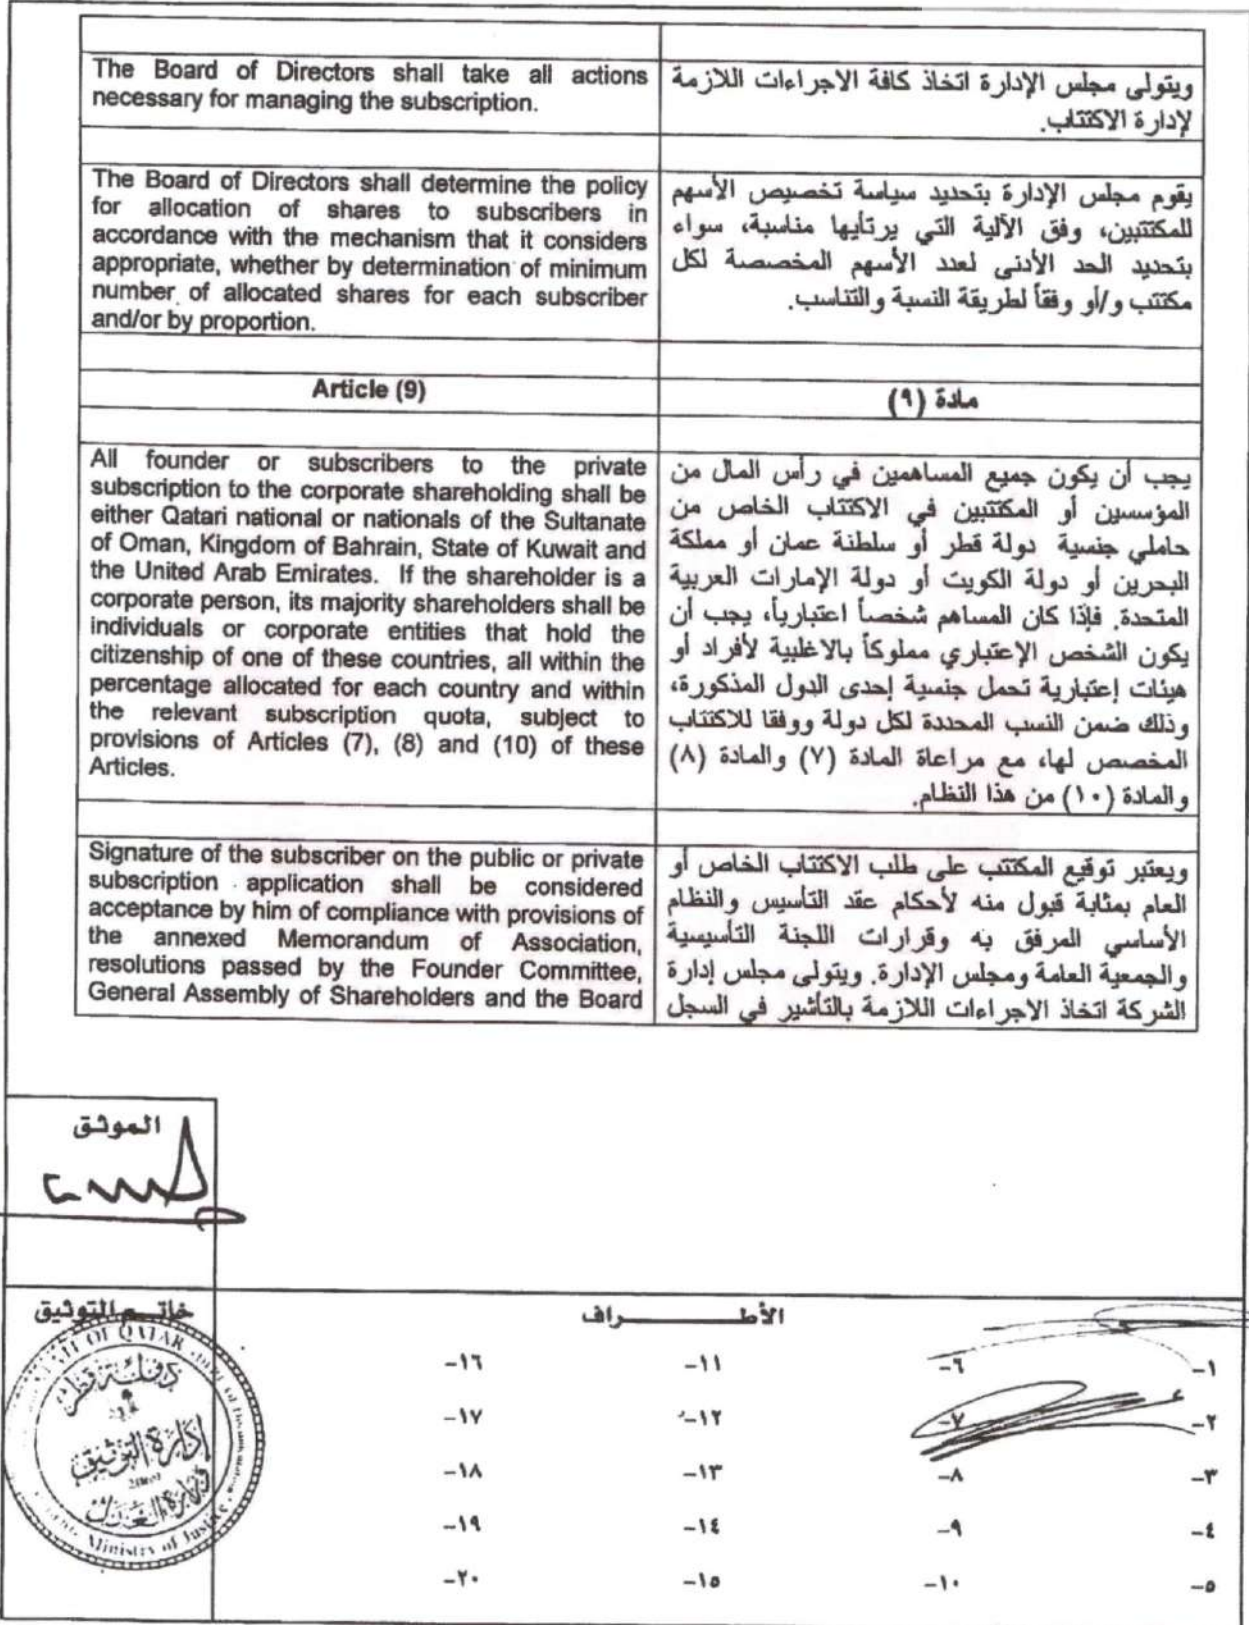 The Board of Directors shall take all actions
necessary for managing the subscription.
ويتولى مجلس الإدارة اتخاذ كافة الاجراءات اللازمة
لإدارة الاكتتاب.
The Board of Directors shall determine the policy
for allocation of shares to subscribers in
accordance with the mechanism that it considers
appropriate, whether by determination of minimum
number of allocated shares for each subscriber
and/or by proportion.
يقوم مجلس الإدارة بتحديد سياسة تخصيص الأسهم
للمكتتبين، وفق الآلية التي يرتأيها مناسبة، سواء
بتحديد الحد الأدنى لعدد الأسهم المخصصة لكل
مكتتب و/أو وفقاً لطريقة النسبة والتناسب.
Article (9)
مادة (٩)
All founder or subscribers to the private
subscription to the corporate shareholding shall be
either Qatari national or nationals of the Sultanate
of Oman, Kingdom of Bahrain, State of Kuwait and
the United Arab Emirates. If the shareholder is a
corporate person, its majority shareholders shall be
individuals or corporate entities that hold the
citizenship of one of these countries, all within the
percentage allocated for each country and within
the relevant subscription quota, subject to
provisions of Articles (7), (8) and (10) of these
Articles.
يجب أن يكون جميع المساهمين في رأس المال من
المؤسسين أو المكتتبين في الاكتتاب الخاص من
حاملي جنسية دولة قطر أو سلطنة عمان أو مملكة
البحرين أو دولة الكويت أو دولة الإمارات العربية
المتحدة. فإذا كان المساهم شخصاً اعتبارياً، يجب أن
يكون الشخص الإعتباري مملوكاً بالاغلبية لأفراد أو
هيئات إعتبارية تحمل جنسية إحدى الدول المذكورة،
وذلك ضمن النسب المحددة لكل دولة ووفقا للاكتتاب
المخصص لها، مع مراعاة المادة (٧) والمادة (٨)
والمادة (١٠) من هذا النظام.
Signature of the subscriber on the public or private
subscription application shall be considered
acceptance by him of compliance with provisions of
the annexed Memorandum of Association,
resolutions passed by the Founder Committee,
General Assembly of Shareholders and the Board
ويعتبر توقيع المكتتب على طلب الاكتتاب الخاص أو
العام بمثابة قبول منه لأحكام عقد التأسيس والنظام
الأساسي المرفق به وقرارات اللجنة التأسيسية
والجمعية العامة ومجلس الإدارة. ويتولى مجلس إدارة
الشركة اتخاذ الاجراءات اللازمة بالتأشير في السجل
الموثق
خاتـم التوثيق
الأطـــــــراف
١- ٦- ١١- ١٦-
٢- ٧- ١٢- ١٧-
٣- ٨- ١٣- ١٨-
٤- ٩- ١٤- ١٩-
٥- ١٠- ١٥- ٢٠-
OF QATAR
دولة قطر
إدارة التوثيق
وزارة العدل
Ministry of Justice